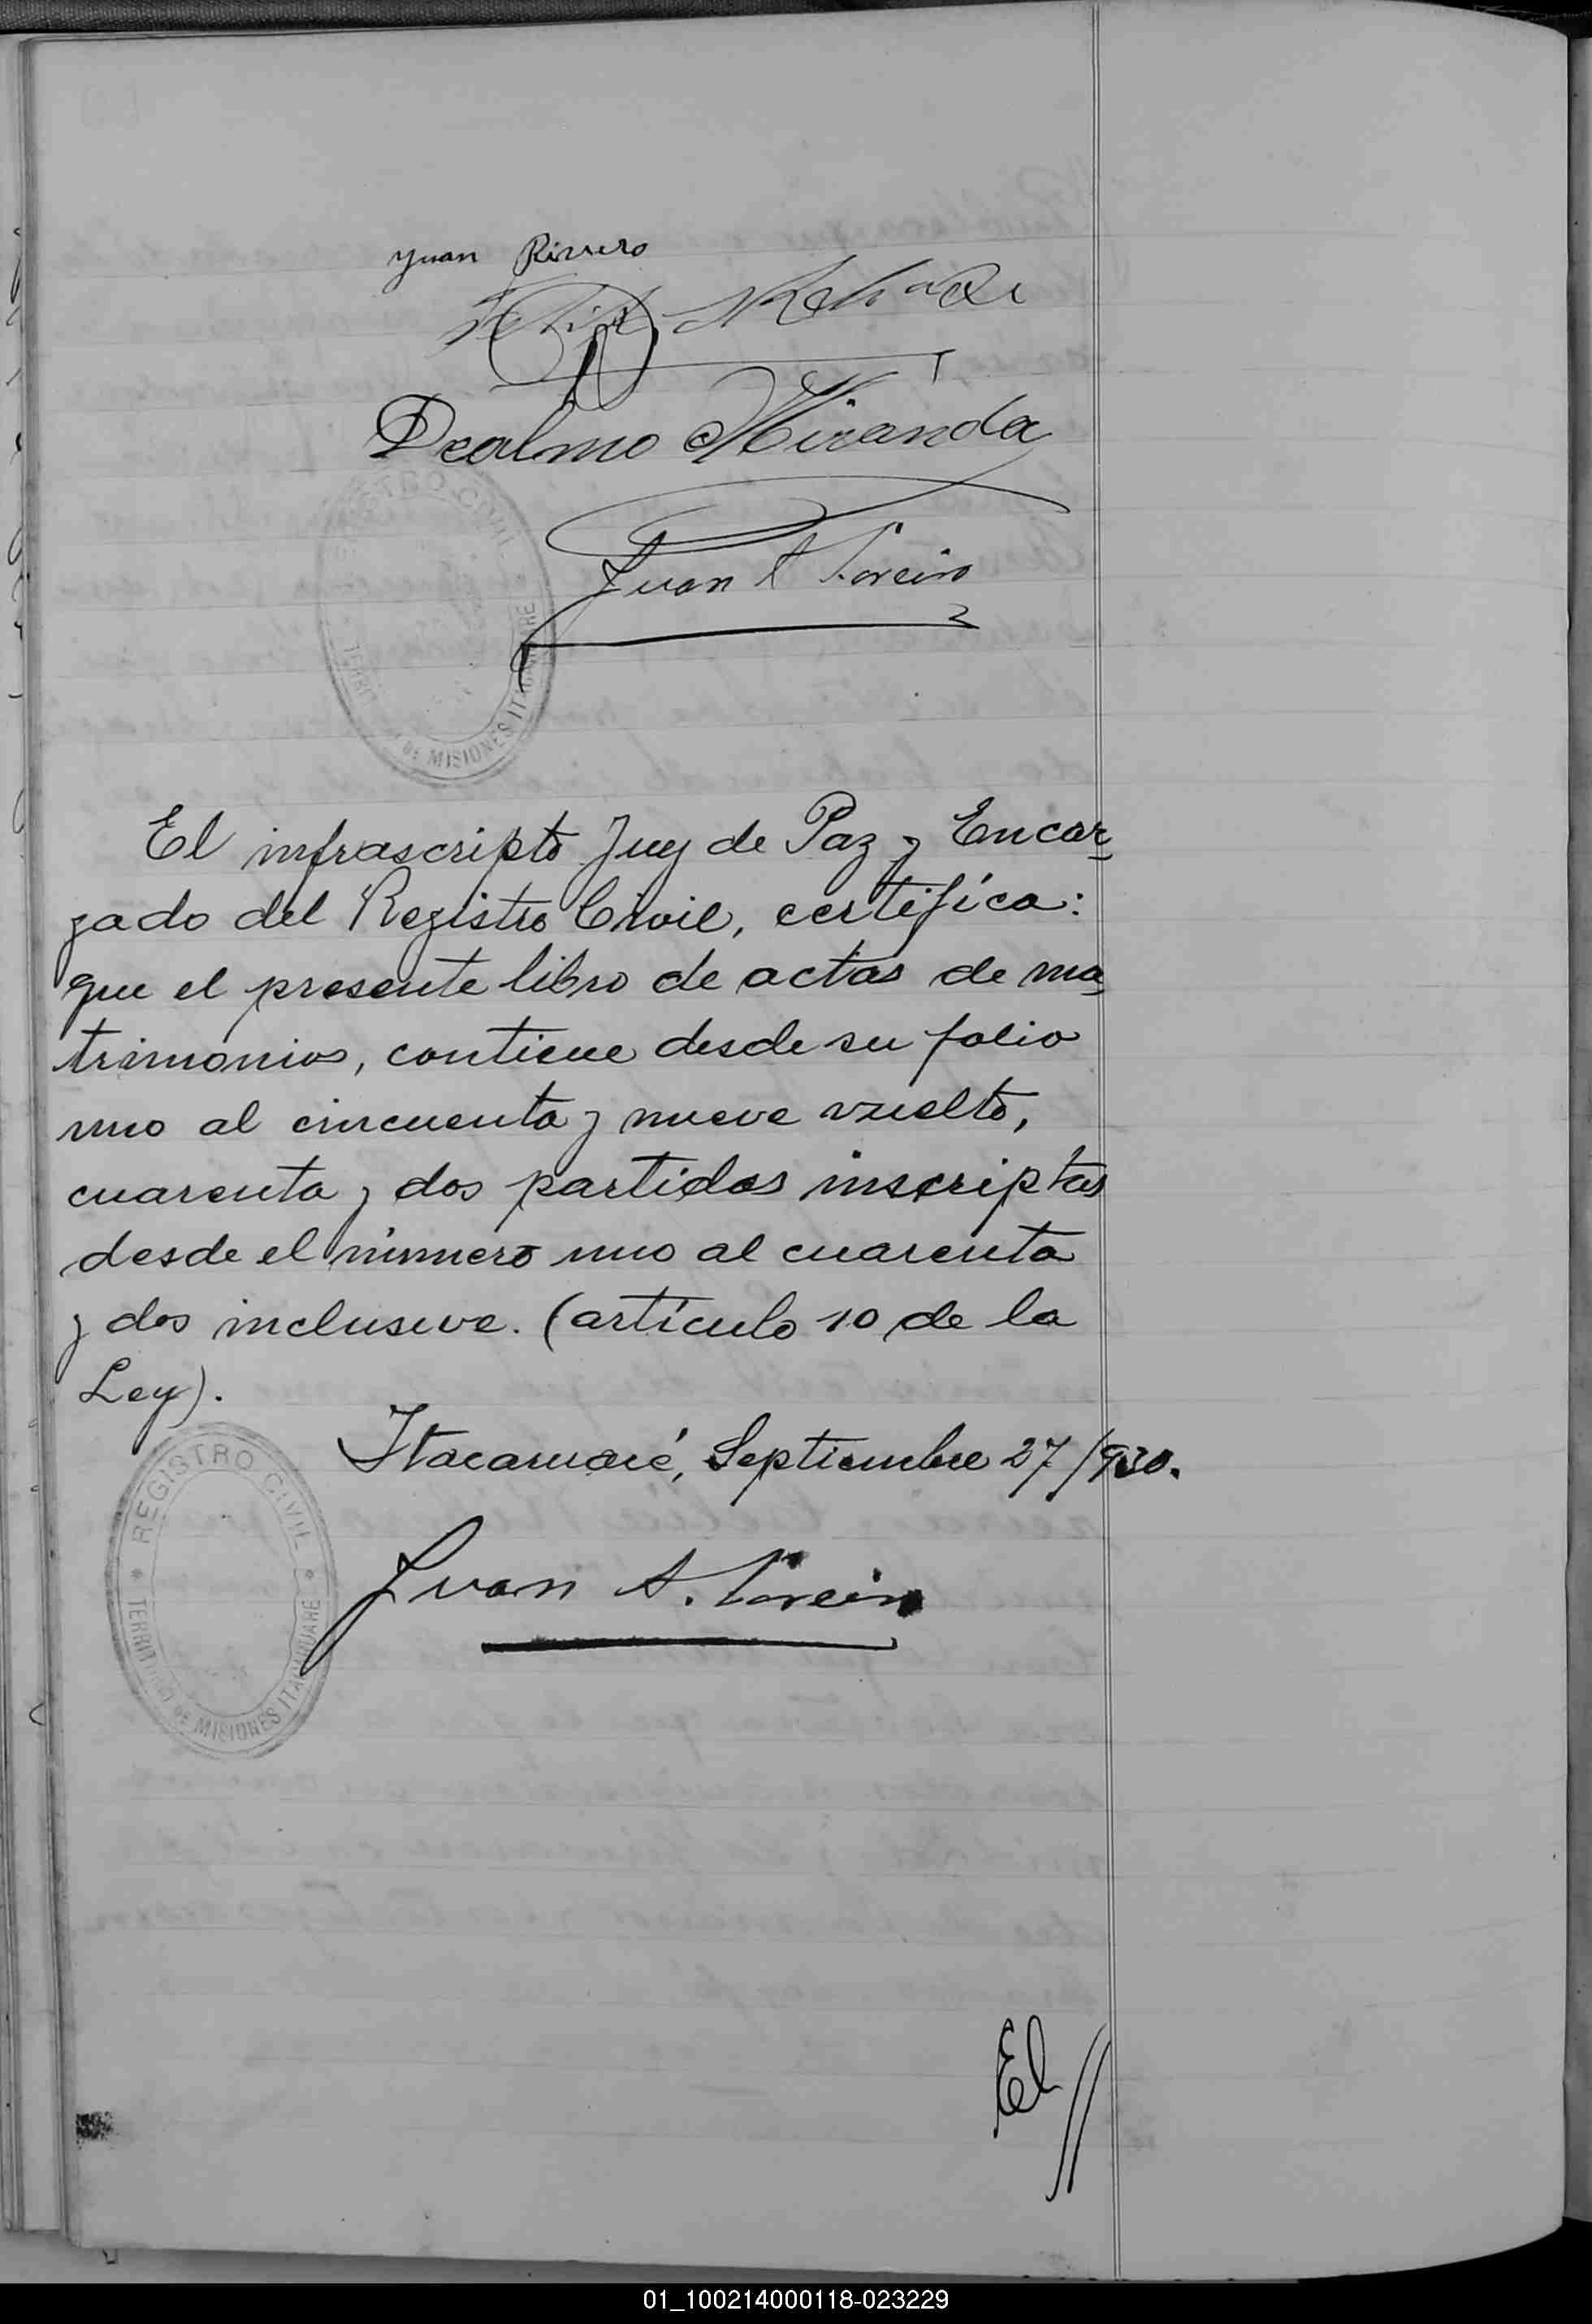 Juan Rivero
Dealmo Miranda
REGISTRO CIVIL
DE MISIONES
Juan A
El infrascripto Juez de Paz y Encar-
gado del Registro Civil, certifica:
que el presente libro de actas de ma-
trimonios, contiene desde su folio
uno al cincuenta y nueve vuelto,
cuarenta y dos partidas inscriptas
desde el número uno al cuarenta
y dos inclusive. (artículo 10 de la
Ley).
Itacaruaré, Septiembre 27/930.
REGISTRO CIVIL * TERRITORIO DE MISIONES ITACARUARE *
Juan A.
El //
01_100214000118-023229